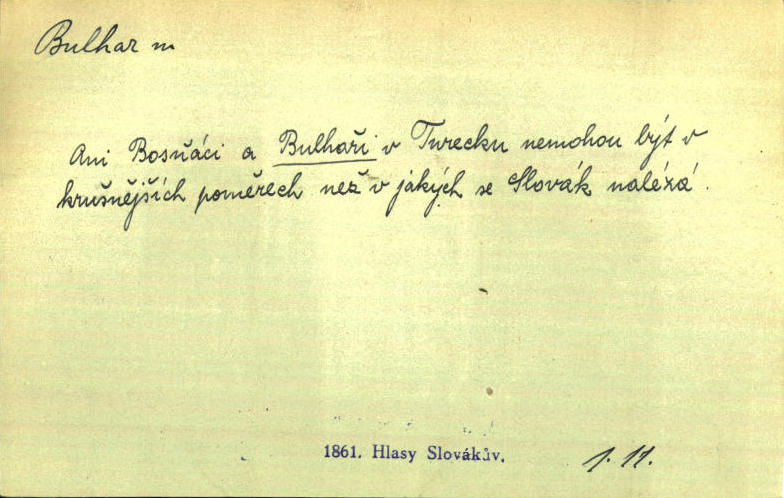 Bulhar m
Ani Bosňáci a Bulhaři v Turecku nemohou být v
krušnějších poměrech než v jakých se Slovák nalézá.
1861. Hlasy Slovákův.
1. 11.